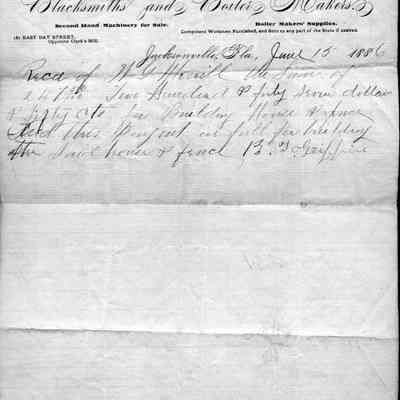 Blacksmiths and Boiler Makers.
Second Hand Machinery for Sale. Boiler Makers' Supplies.
181 EAST DAY STREET, Competent Workmen Furnished, and Sent to any part of the State if desired.
Opposite Clark's Mill.
Jacksonville, Fla, June 15 1886
Recd of W the Sum of
247 50 Two Hundred & forty Seven dollars
& fifty cts for Building House & fence
And this Payment in full for building
the Said house & fence B. J. Griffin